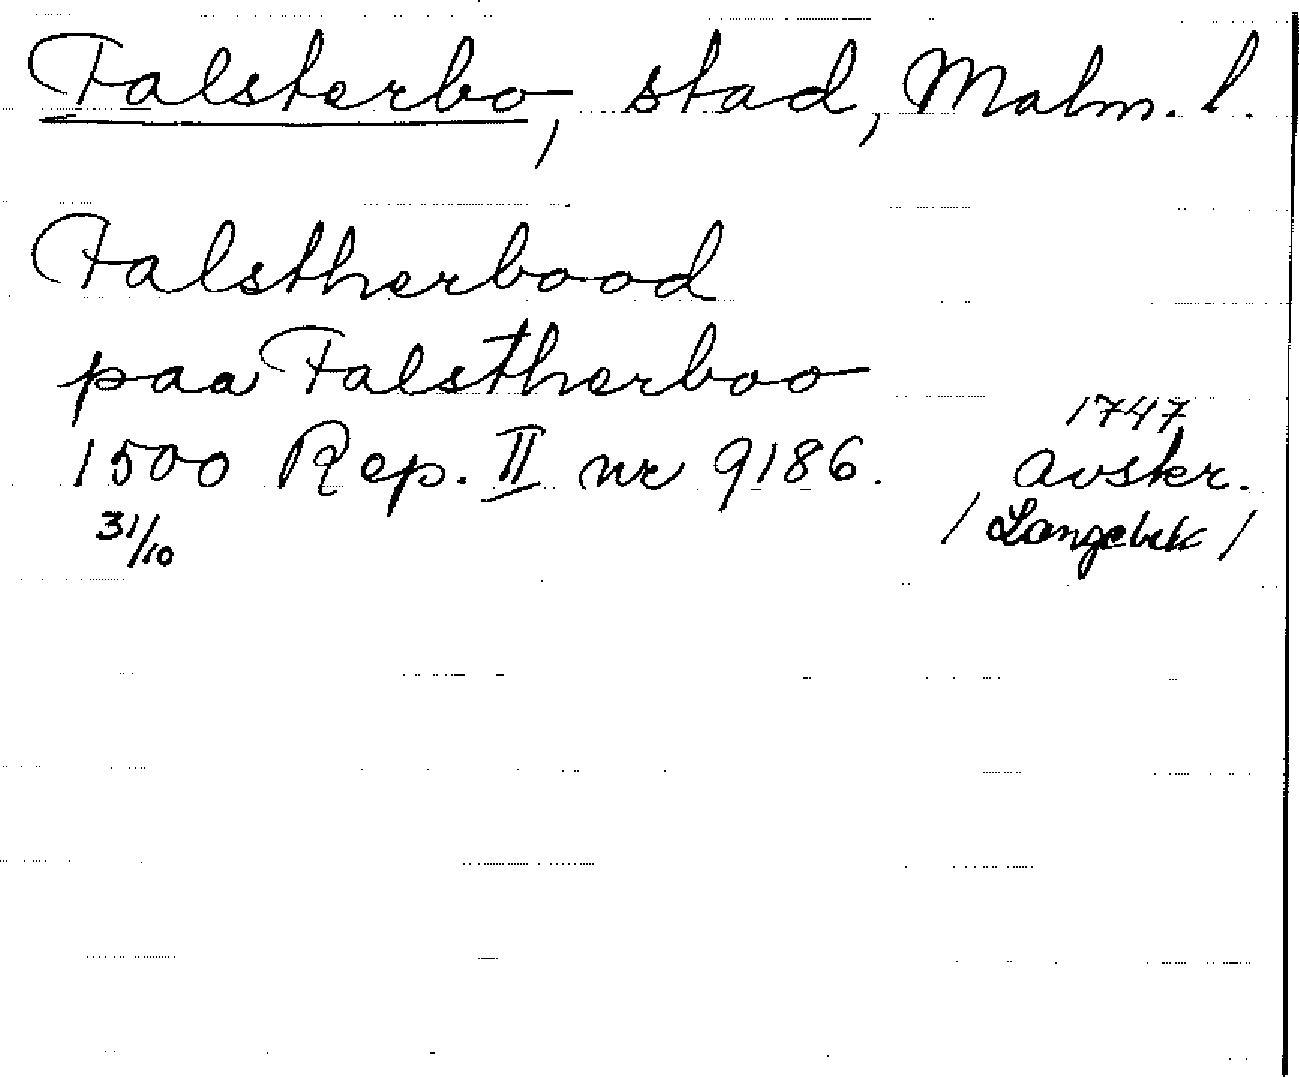 Falsterbo, stad, Malm. l.
Falstherbood
paa Falstherboo
1747
1500 Rep. II nr 9186. avskr.
31/10 /Langebek/